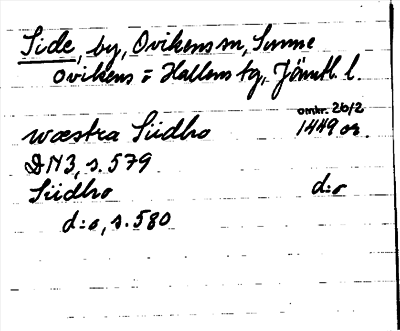 Side, by, Ovikens sn, Sunne
Ovikens o Hallens tg, Jämtl. l.
omkr. 26/2
wæstra Siidho 1449 or.
DN3, s. 579
Siidho d:o
d:o, s. 580